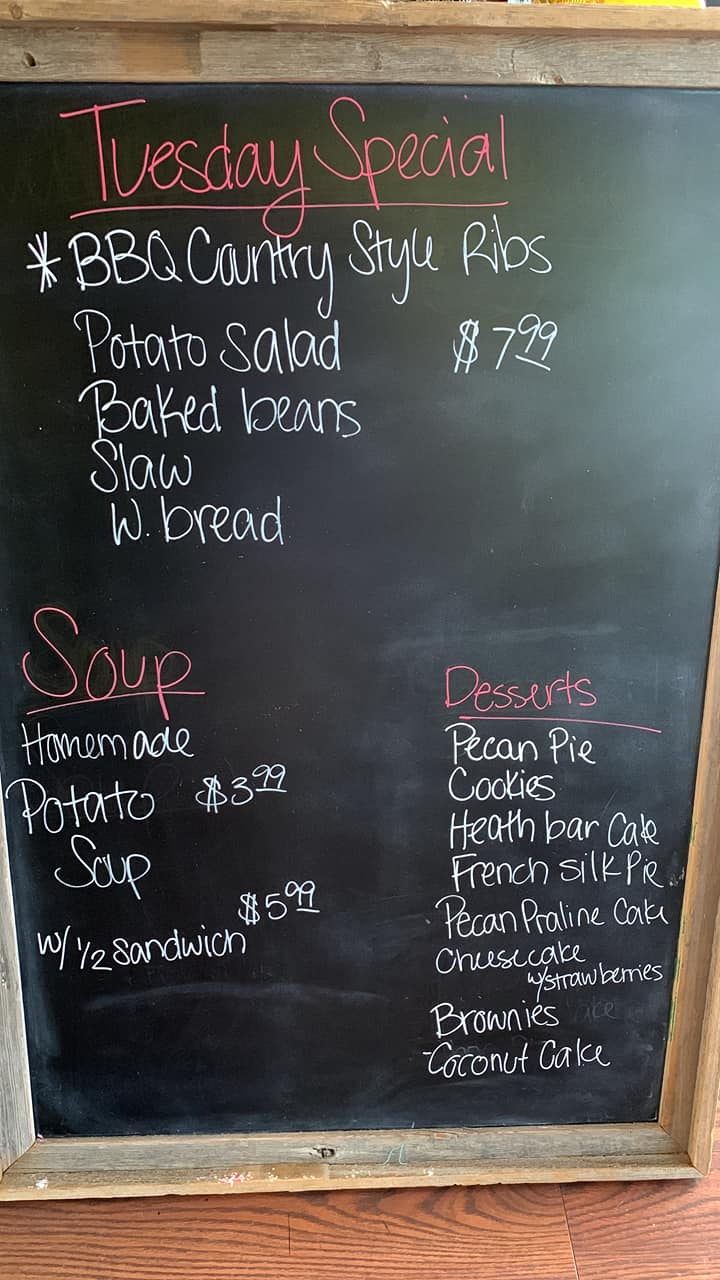 Tuesday Special
* BBQ Country Style Ribs
Potato Salad $7.99
Baked beans
Slaw
W. bread
Soup
Homemade
Potato $3.99
Soup
$5.99
w/ 1/2 Sandwich
Desserts
Pecan Pie
Cookies
Heath bar Cake
French Silk Pie
Pecan Praline Cake
Cheesecake
w/strawberries
Brownies
-Coconut Cake